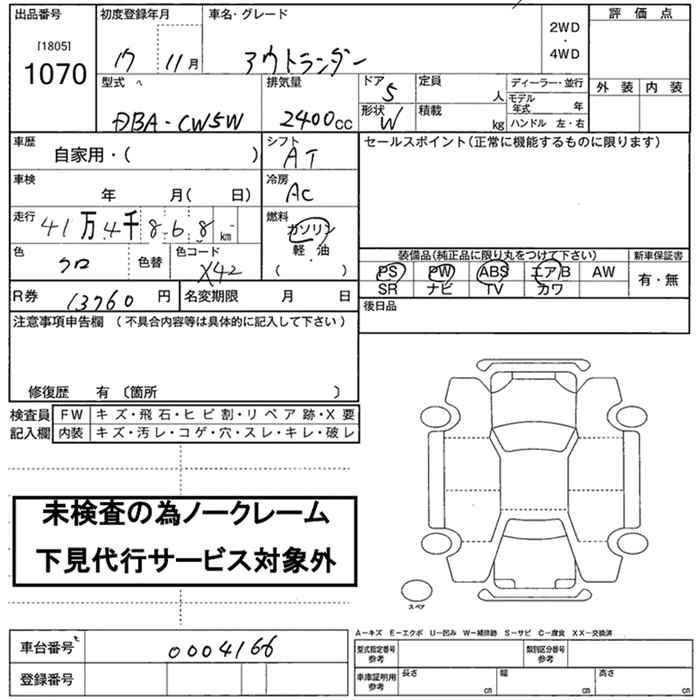 出品番号 初度登録年月 車名・グレード 評価点
[1805]
1070
17 11月 アウトランダー 2WD・4WD
型式 排気量 ドア 定員 ディーラー・並行 外装 内装
DBA-CW5W 2400cc 5 人 モデル年式 年
形状 W 積載 kg ハンドル 左・右
車歴 シフト セールスポイント(正常に機能するものに限ります)
自家用・( ) AT
車検 冷房
年 月( 日) AC
走行 燃料
41万4千868km ガソリン
軽・油
( )
色 色替 色コード 装備品(純正品に限り丸をつけて下さい) 新車保証書
クロ X42 PS PW ABS エアB AW 有・無
SR ナビ TV カワ
R券 13760円 名変期限 月 日 後日品
注意事項申告欄 (不具合内容等は具体的に記入して下さい)
修復歴 有 〔箇所 〕
検査員 FW キズ・飛石・ヒビ割・リペア跡・X要
記入欄 内装 キズ・汚レ・コゲ・穴・スレ・キレ・破レ
未検査の為ノークレーム
下見代行サービス対象外
スペア
A-キズ E-エクボ U-凹み W-補修跡 S-サビ C-腐食 XX-交換済
車台番号 0004166 型式指定番号 参考 類別区分番号 参考
登録番号 車庫証明用 参考 長さ cm 幅 cm 高さ cm